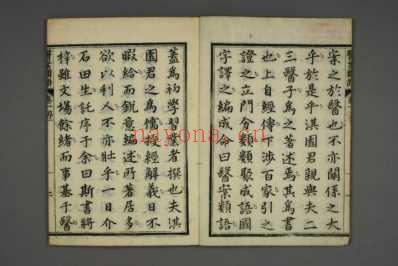 案之於醫也不亦關係之大
乎於是乎淇園君親與夫二
三醫子爲之著述焉其爲書
也上自經傳下涉百家引之
證之立門分類類聚成語國
字譯之編成命曰醫案類語
蓋爲初學習業者撰也夫淇
園君之爲儒授經解義日不
暇給而銳意編述所著居多
欲以利人不亦壯乎一日介
石田生託序于余曰斯書將
梓雖文場餘緒而事基于醫
nayona.cn